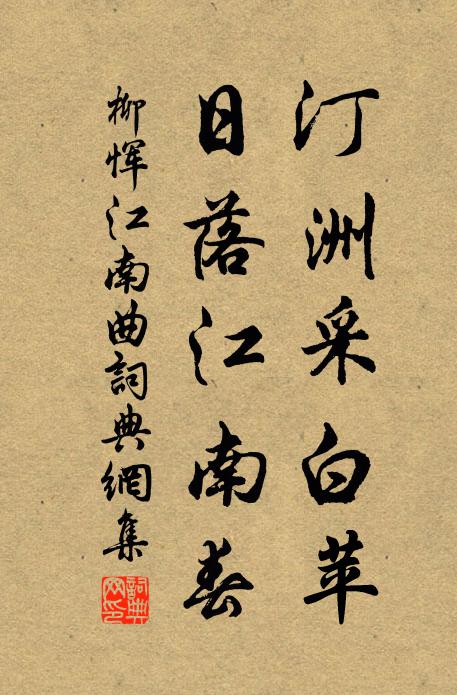 汀洲采白苹
日落江南春
柳惲江南曲詞典網集
詞典网印